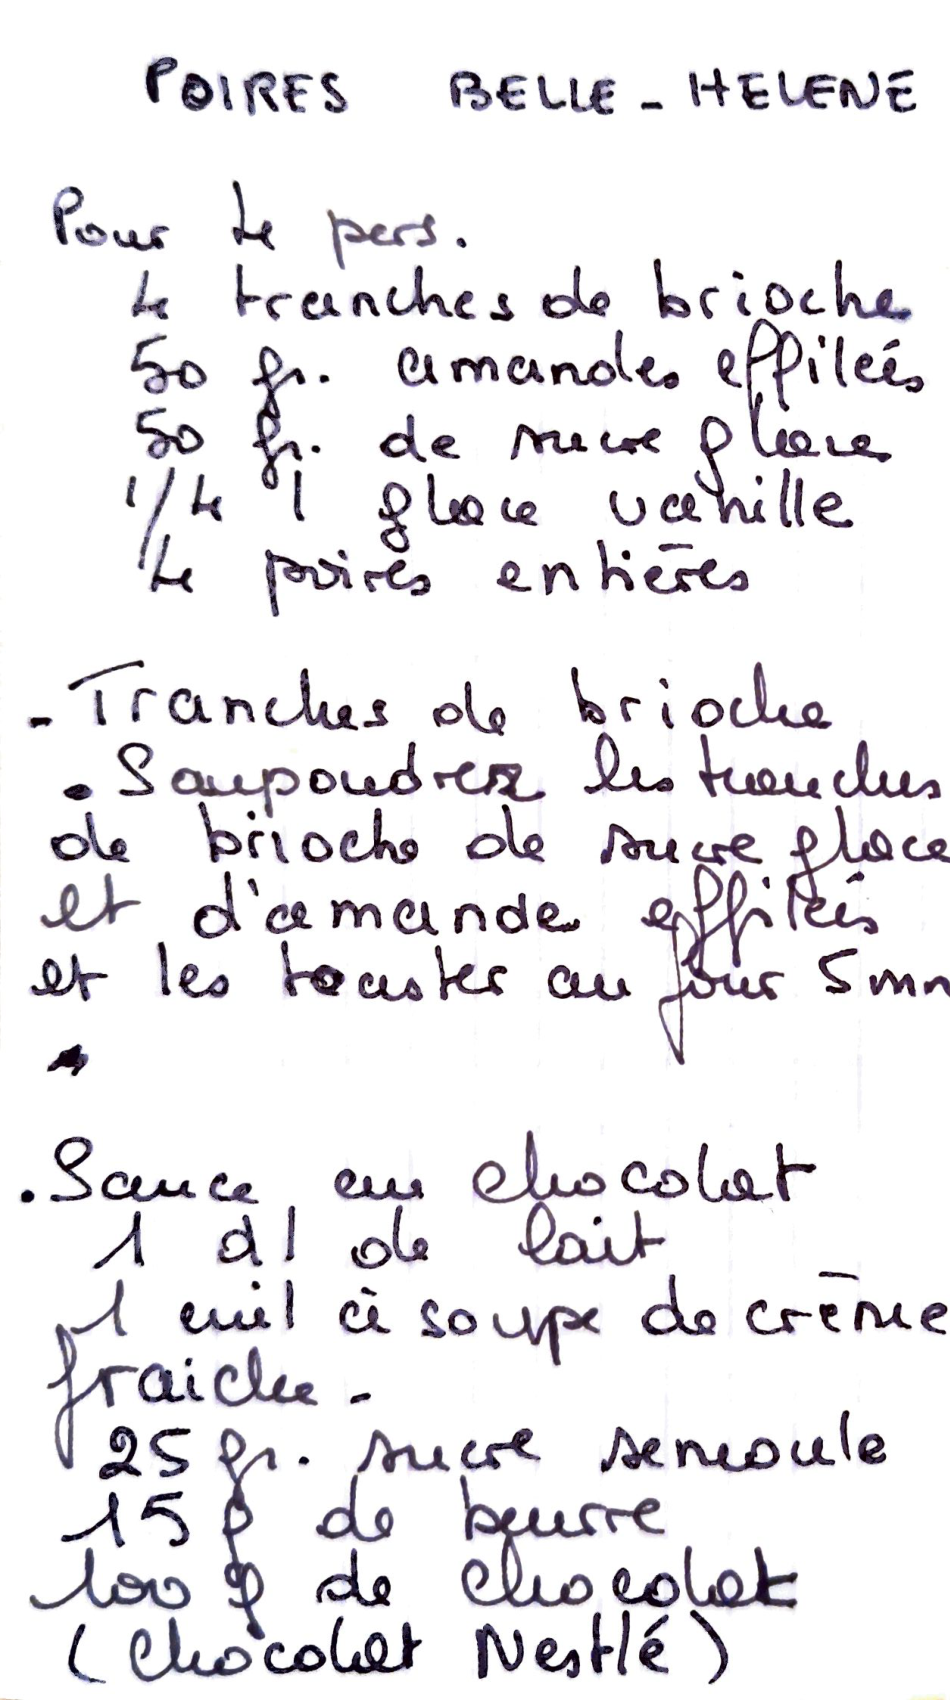 POIRES BELLE-HELENE
Pour 4 pers.
4 tranches de brioche
50 gr. amandes effileés
50 gr. de sucre glace
1/4 l glace vanille
4 poires entières
- Tranches de brioche
. Saupoudrez les tranches
de brioche de sucre glace
et d'amande effileés
et les toaster au four 5 mn
. Sauce au chocolat
1 dl de lait
1 cuil à soupe de crème
fraiche -
25 gr. sucre semoule
15 g de beurre
100 g de chocolat
(chocolat Nestlé)